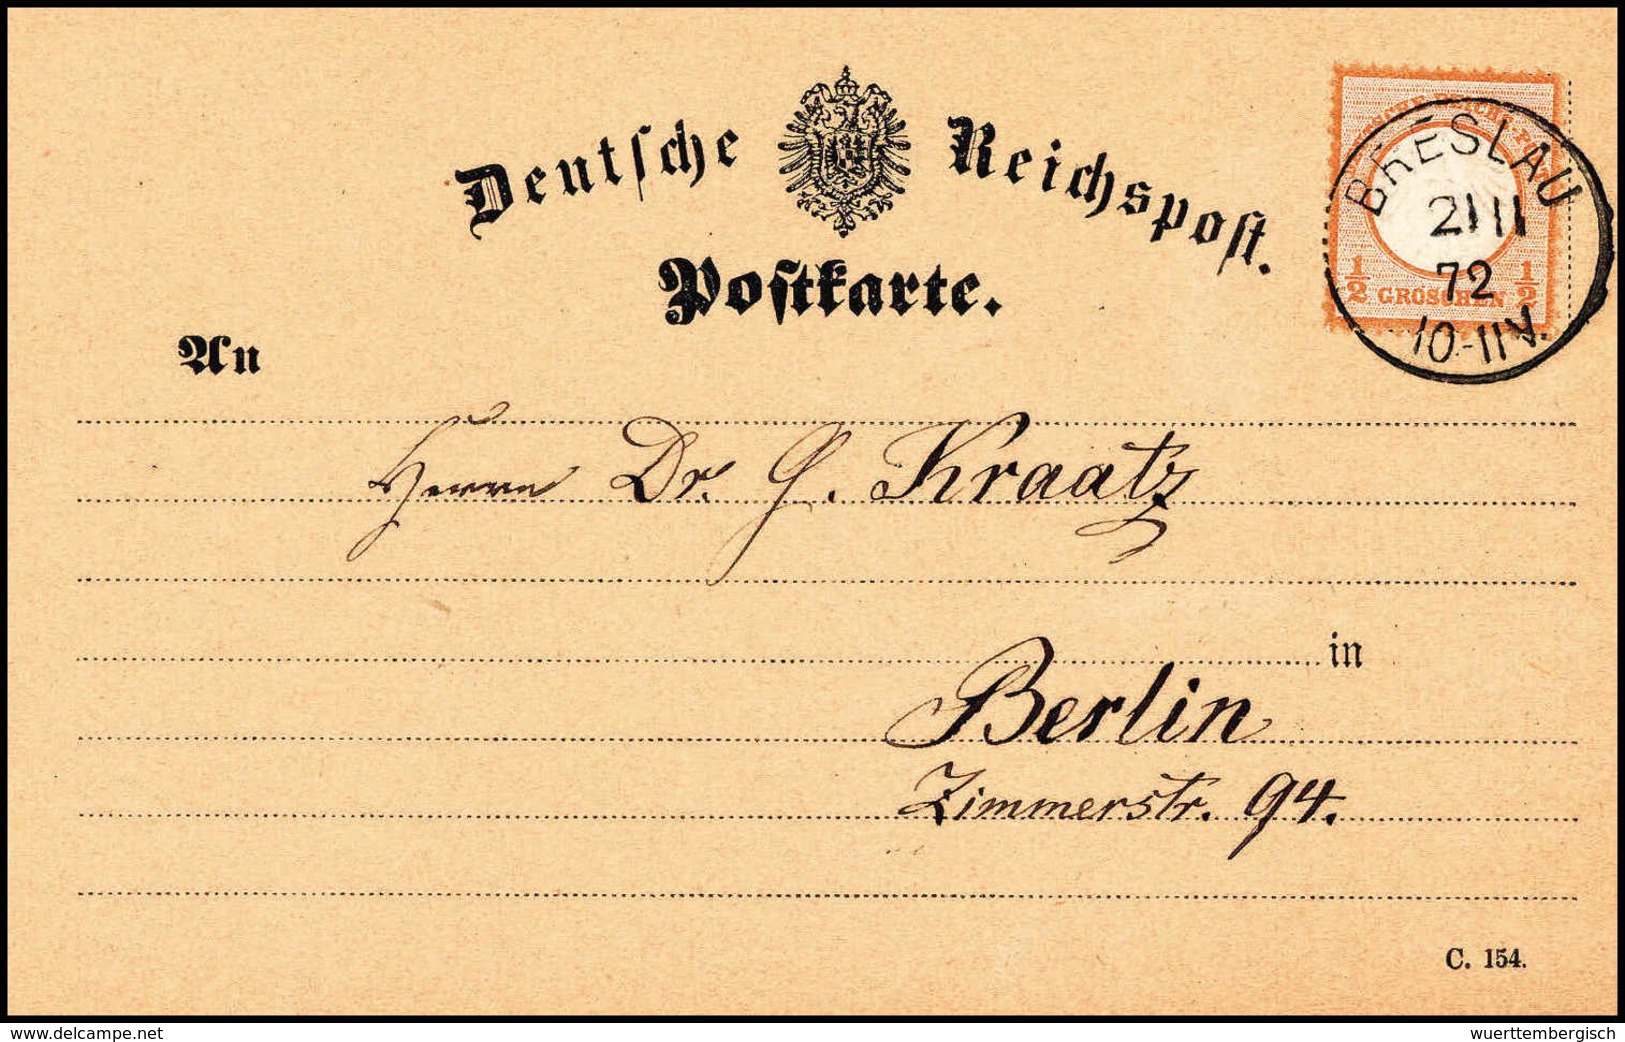 Deutsche Reichspost.
Postkarte.
DEUTSCHE REICHS-POST
½ GROSCHEN ½
BRESLAU
2111
72
10-11V.
An
Herrn Dr. G. Kraatz
in
Berlin
Zimmerstr. 94.
C. 154.
www.delcampe.net
wuerttembergisch